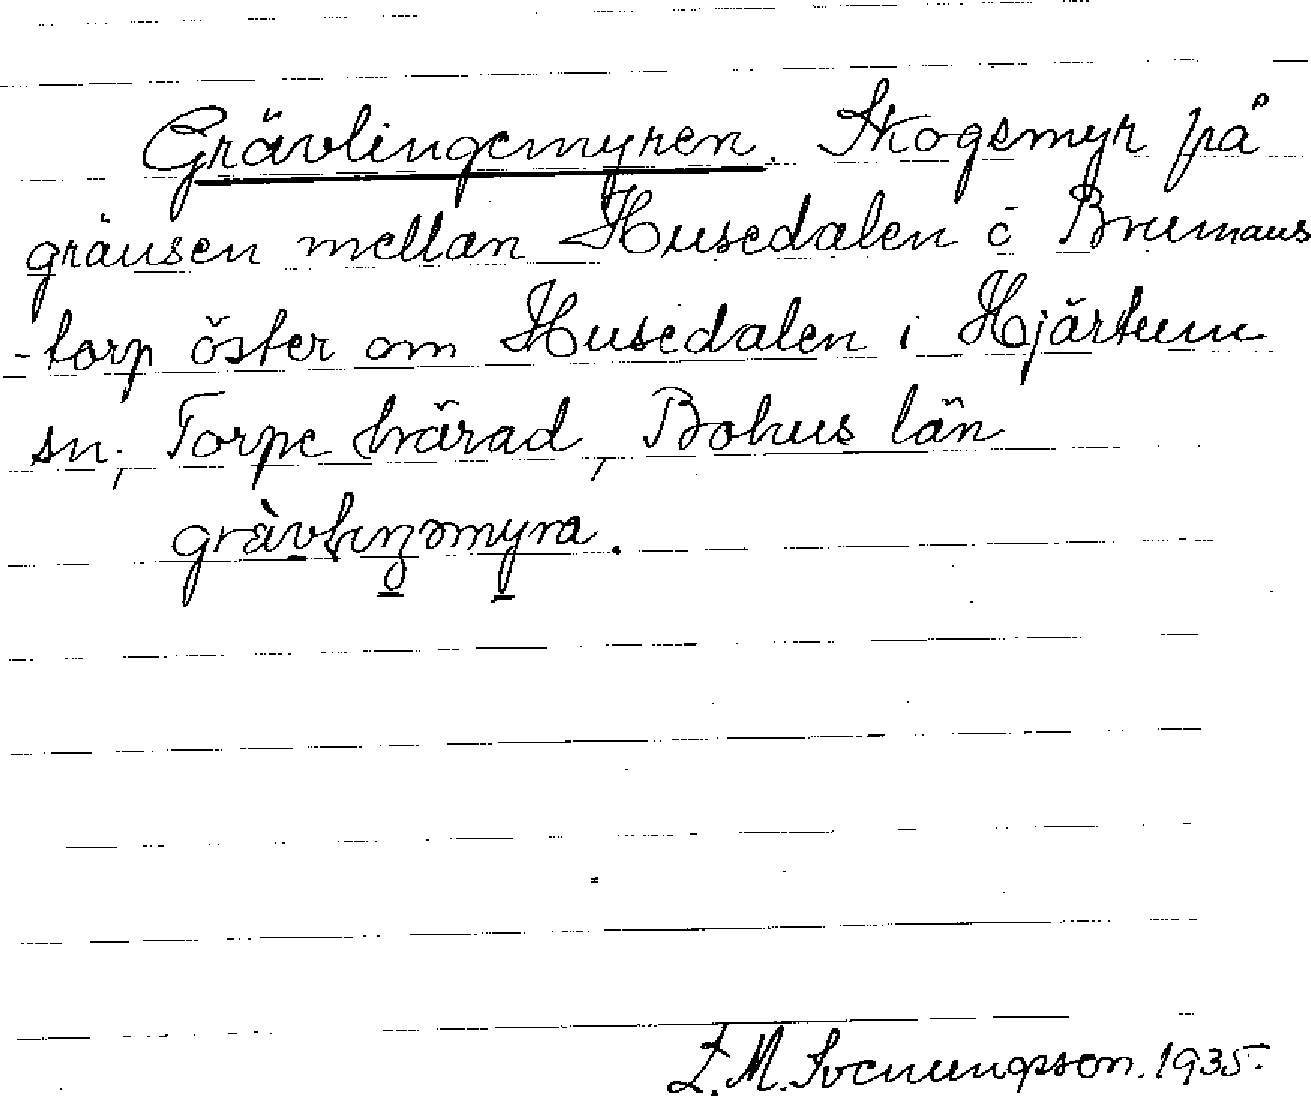 Grävlingemyren. Skogsmyr på
gränsen mellan Husedalen o Brumans
-torp öster om Husedalen i Hjärtum
sn, Torpe härad, Bohus län
grävliŋəmyra.
L. M. Svenungsson. 1935.